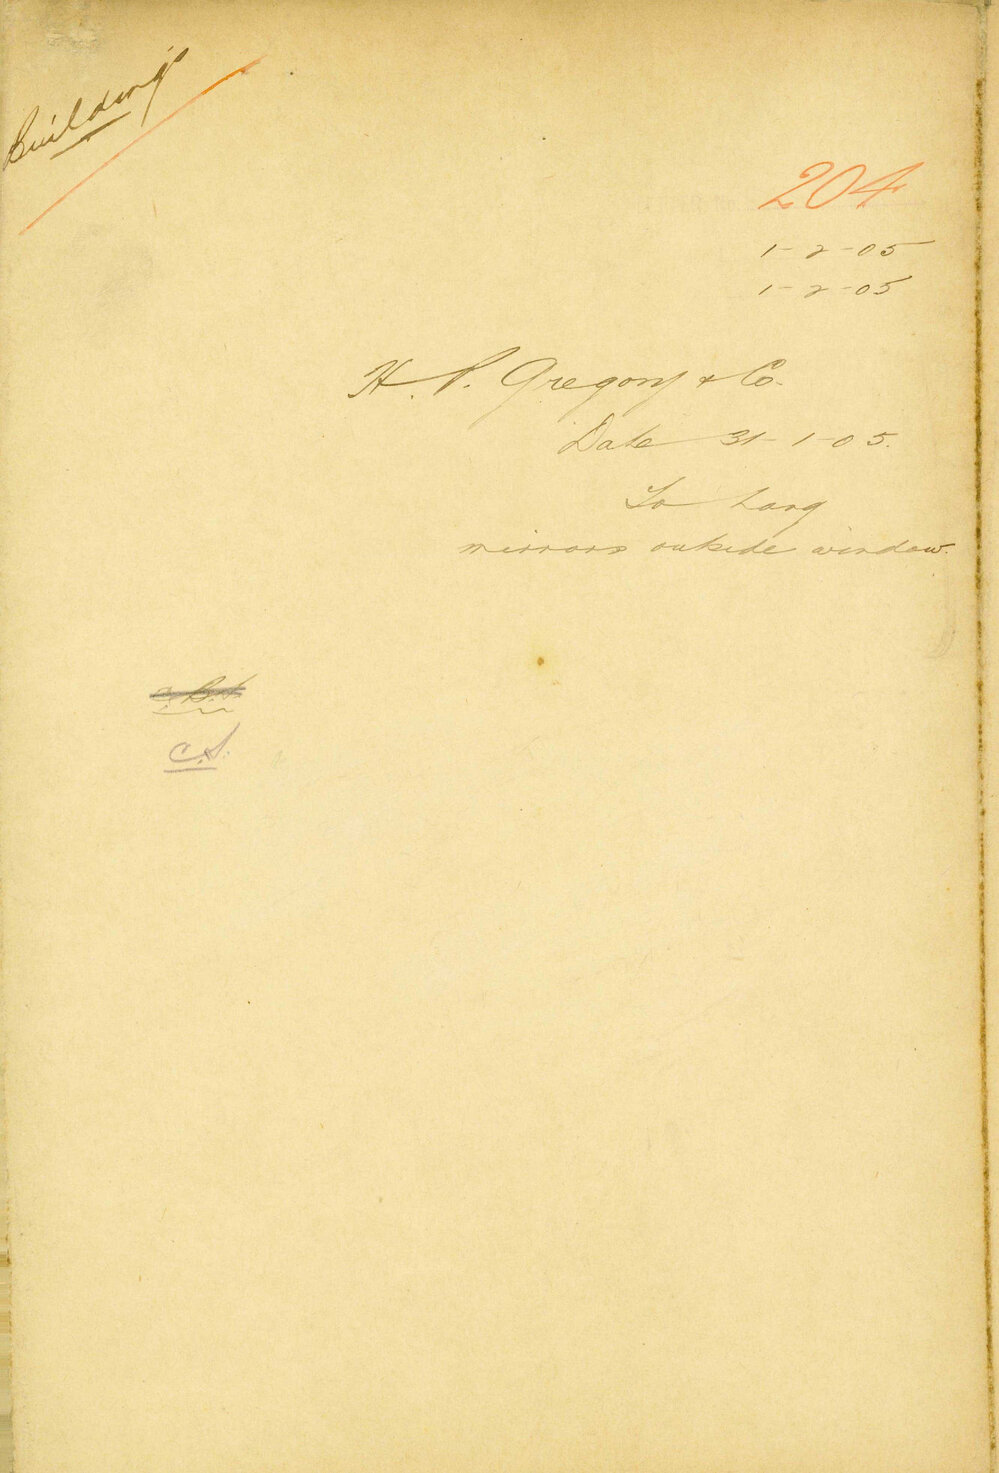 Buildings
204
1-2-05
1-2-05
H. P. Gregory & Co.
Date 31-1-05.
To hang
mirrors outside window.
C.S.